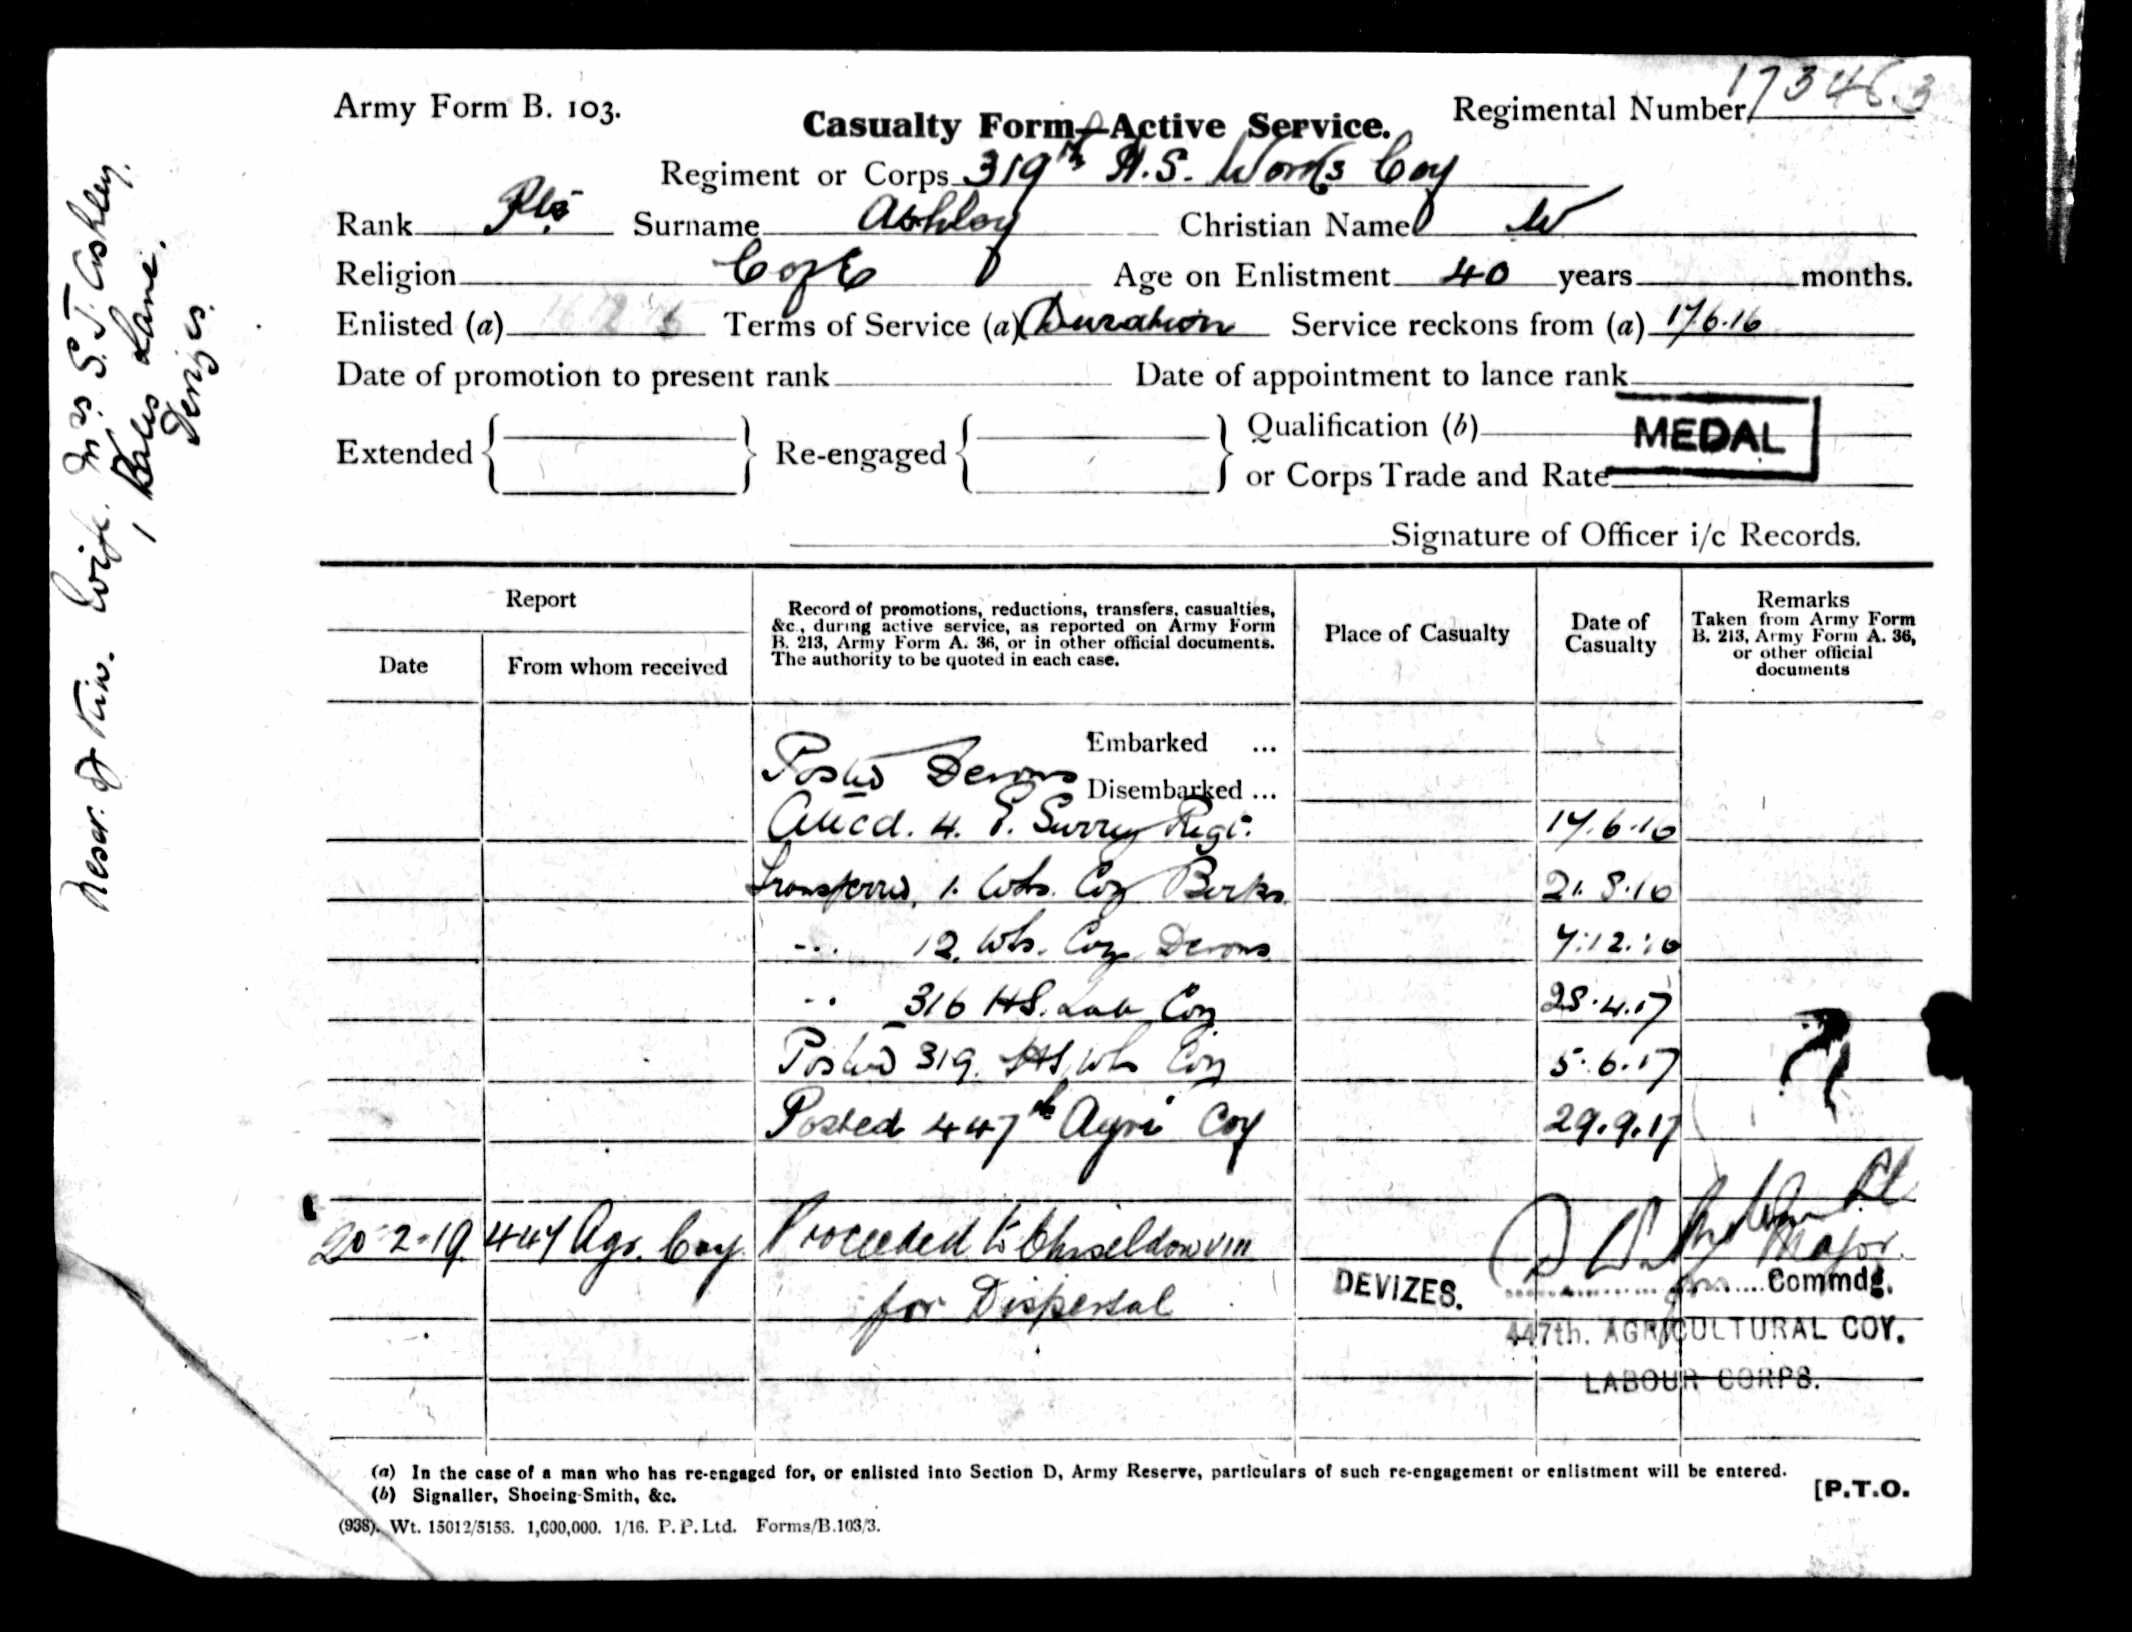 Army Form B. 103.
Casualty Form—Active Service.
Regimental Number 173463
Regiment or Corps 319th H.S. Works Coy
Rank Pte Surname Ashley Christian Name W
Religion C of E Age on Enlistment 40 years months.
Enlisted (a) Terms of Service (a) Duration Service reckons from (a) 17.6.16
Date of promotion to present rank Date of appointment to lance rank
Extended Re-engaged Qualification (b)
or Corps Trade and Rate
MEDAL
Signature of Officer i/c Records.
Next of Kin. Wife. Mrs. S. J. Ashley.
1 Lane.
Devizes.
Report
Date
From whom received
Record of promotions, reductions, transfers, casualties,
&c., during active service, as reported on Army Form
B. 213, Army Form A. 36, or in other official documents.
The authority to be quoted in each case.
Place of Casualty
Date of
Casualty
Remarks
Taken from Army Form
B. 213, Army Form A. 36,
or other official
documents
Embarked ...
Posted Devons
Disembarked ...
Attcd. 4. E. Surrey Regt. 17.6.16
Transferred 1. Wks. Coy Berks. 21.8.16
-.. 12. Wks. Coy Devons 7.12.16
-.. 316 HS. Lab Coy 28.4.17
Posted 319. HS Wks Coy 5.6.17
Posted 447th Agri Coy 29.9.17
20-2-19 447 Agr. Coy Proceeded to Chiseldon VIII
for Dispersal
Major.
DEVIZES.
for Commdg.
447th. AGRICULTURAL COY.
LABOUR CORPS.
(a) In the case of a man who has re-engaged for, or enlisted into Section D, Army Reserve, particulars of such re-engagement or enlistment will be entered.
(b) Signaller, Shoeing-Smith, &c.
[P.T.O.
(938). Wt. 15012/5156. 1,000,000. 1/16. P. P. Ltd. Forms/B.103/3.